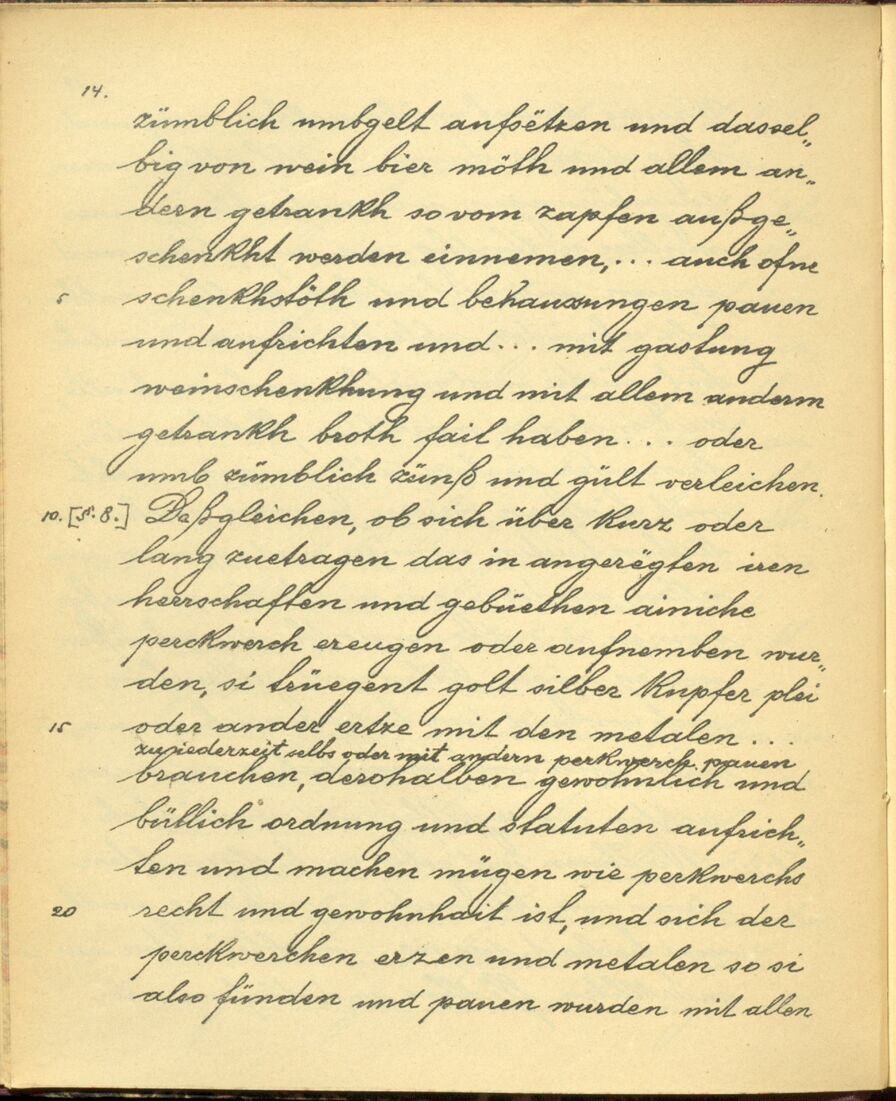 14.
zümblich umbgelt aufsëtzen und dassel„
big von wein bier möth und allem an„
dern getrankh so vom zapfen außge„
schenkht werden einnemen, ... auch ofne
5 schenkhstöth und behaussungen pauen
und aufrichten und ... mit gastung
weinschenkhung und mit allem anderm
getrankh broth fail haben ... oder
umb zümblich zünß und gült verleichen.
10. [§. 8.] Deßgleichen, ob sich über kurz oder
lang zuetragen das in angerëgten iren
herrschaften und gebüethen ainiche
perckwerch ereugen oder aufnemben wur„
den, si trüegent golt silber kupfer plei
15 oder ander ertze mit den metalen ...
zu iederzeit selbs oder mit andern perkwerch pauen
brauchen, derohalben gewohnlich und
büllich ordnung und statuten aufrich„
ten und machen mügen wie perkwerchs
20 recht und gewohnhait ist, und sich der
perckwerchen erzen und metalen so si
also fünden und pauen wurden mit allen